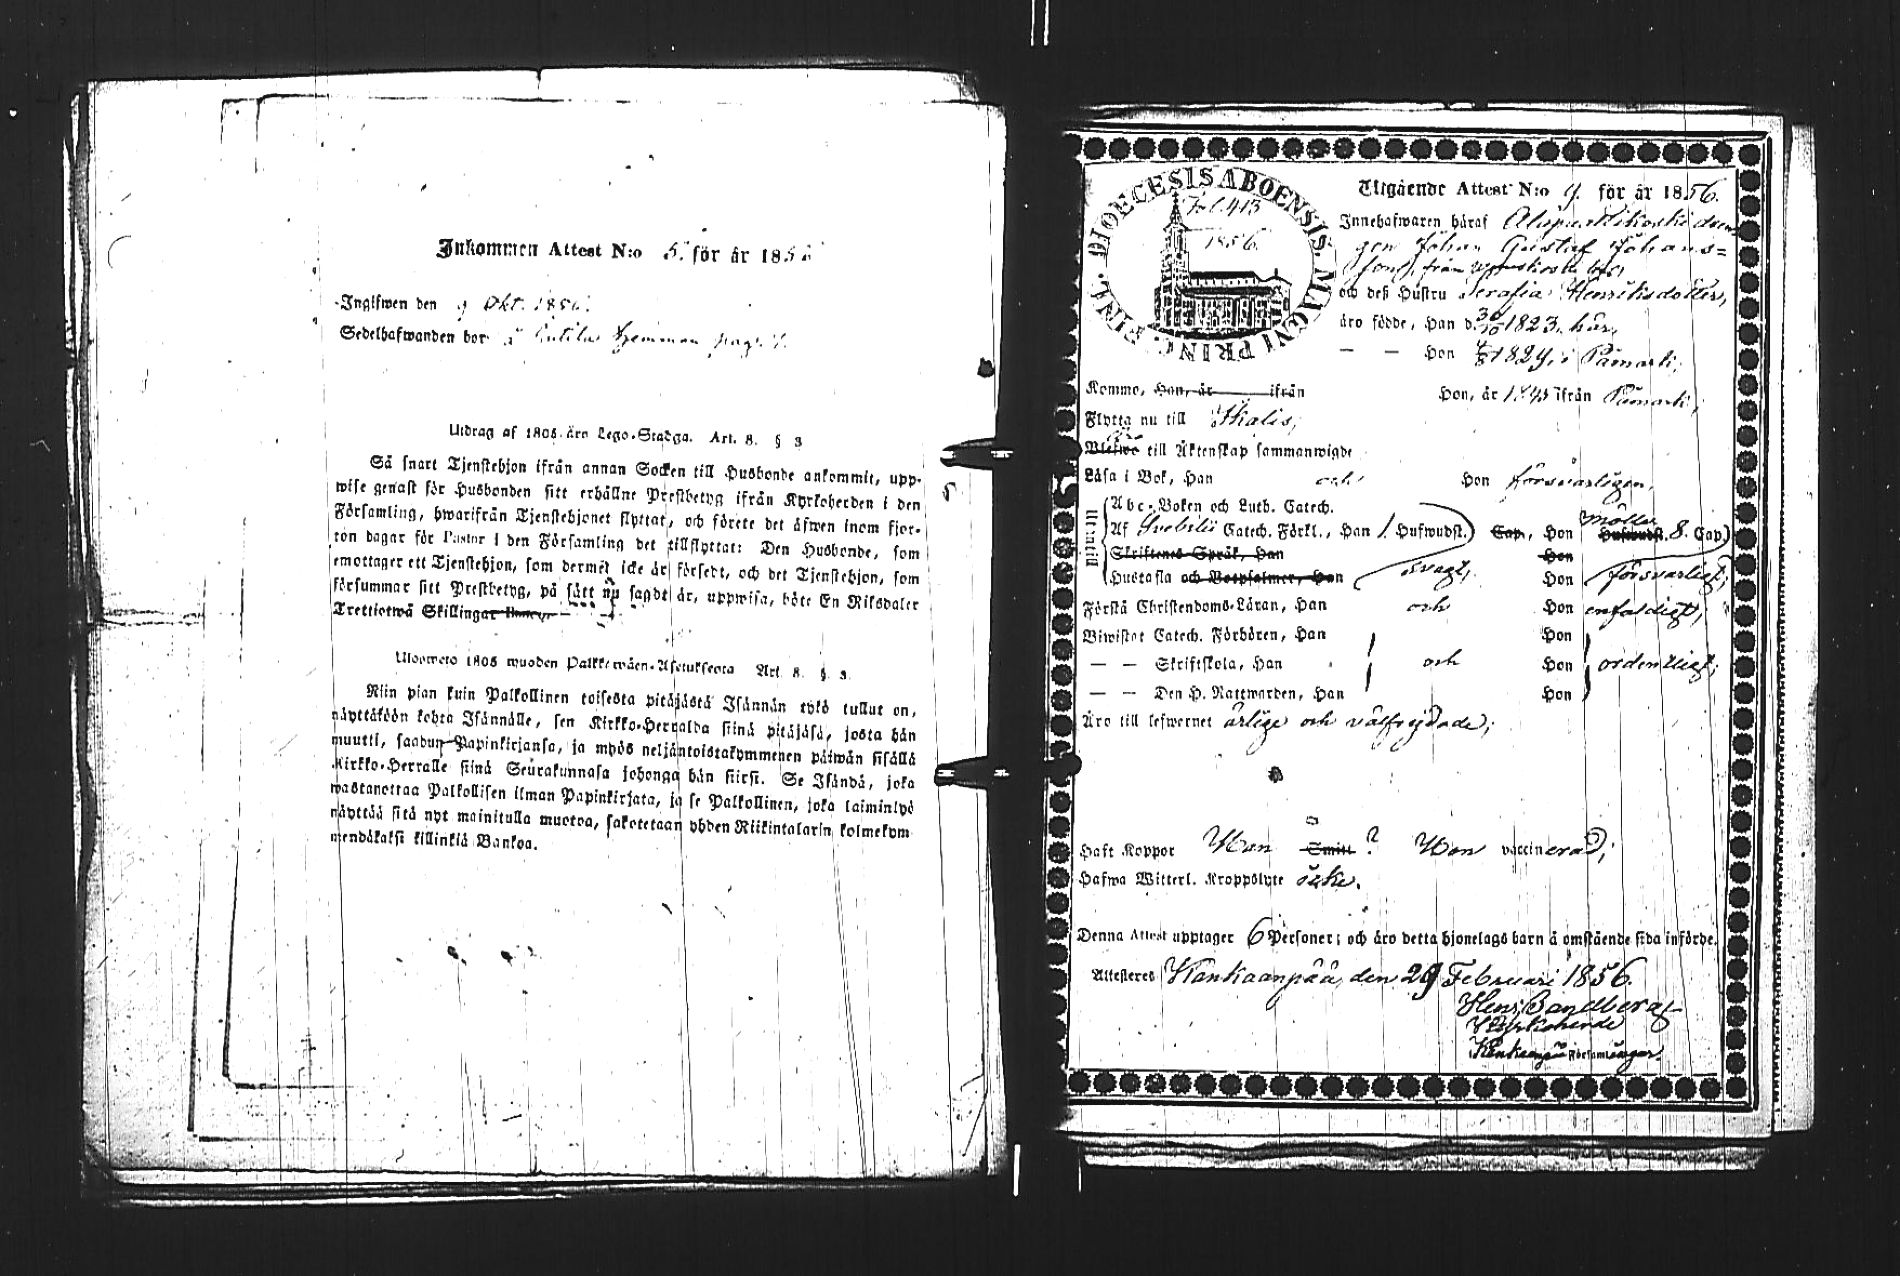 Inkommen Attest N:o 5. för år 185
Ingifwen den 9 Okt. 1856.
Sedelhafwanden bor å hemman
Utdrag af 1805 års Lego-Stadga. Art. 8. § 3
Så snart Tjenstehjon ifrån annan Socken till Husbonde ankommit, upp-
wise genast för Husbonden sitt erhållne Prestbetyg ifrån Kyrkoherden i den
Församling, hwarifrån Tjenstehjonet flyttat, och förete det äfwen inom fjor-
ton dagar för Pastor i den Församling det tillflyttat: Den Husbonde, som
emottager ett Tjenstehjon, som dermed icke är försedt, och det Tjenstehjon, som
försummar sitt Prestbetyg, på sätt nu sagdt är, uppwisa, böte En Riksdaler
Trettiotwå Skillingar
Ulosweto 1805 wuoden Palkkawäen-Asetuksesta Art. 8. §. 3.
Niin pian kuin Palkollinen toisesta pitäjästä Isännän tykö tullut on,
näyttäköön kohta Isännälle, sen Kirkko-Herralda siinä pitäjäsä, josta hän
muutti, saadun Papinkirjansa, ja myös neljäntoistakymmenen päiwän sisällä
Kirkko-Herralle siinä Seurakunnasa johonga hän siirsi. Se Isändä, joka
wastanottaa Palkollisen ilman Papinkirjata, ja se Palkollinen, joka laiminlyö
näyttää sitä nyt mainitulla muotoa, sakotetaan yhden Riikintalarin kolmekym
mendäkaksi killinkiä Bankoa.
DIOECESIS ABOENSIS. MAGNI PRINC. FINL.
Fol. 413
1856.
Utgående Attest N:o 9. för år 1856.
Innehafwaren häraf
gen Johan Gustaf Johans=
son, från
och deß Hustru Serafia Henriksdotter,
äro födde, Han d. 30/10 1823. här,
— — Hon 4/8 1824, i Påmark;
Komne, Han, år ifrån Hon, år 1845 ifrån Påmark;
Flytta nu till Ikalis;
Blefwo till Äktenskap sammanwigde
Läsa i Bok, Han och Hon försvarligen,
Utantill
Abc-Boken och Luth. Catech.
Af Svebilii Catech. Förkl., Han 1. Hufwudst.) Cap., Hon Hufwudst. 8. Cap.)
Skriftenes Språk, Han Hon
Hustafla och Botpsalmer, Han svagt, Hon försvarligt;
Förstå Christendoms-Läran, Han och Hon enfaldigt;
Biwistat Catech. Förhören, Han Hon
— — Skriftskola, Han och Hon ordentligt;
— — Den H. Nattwarden, Han Hon
Äro till lefwernet ärlige och välfrejdade;
Haft Koppor Han Smitt ? Hon vaccinerad;
Hafwa Witterl. Kroppslyte icke.
Denna Attest upptager 6 Personer; och äro detta hjonelags barn å omstående sida införde.
Attesteres Kankaanpää, den 29 Februari 1856.
Henr. Sandberg
Kyrkoherde
Kankaanpää Församlingar